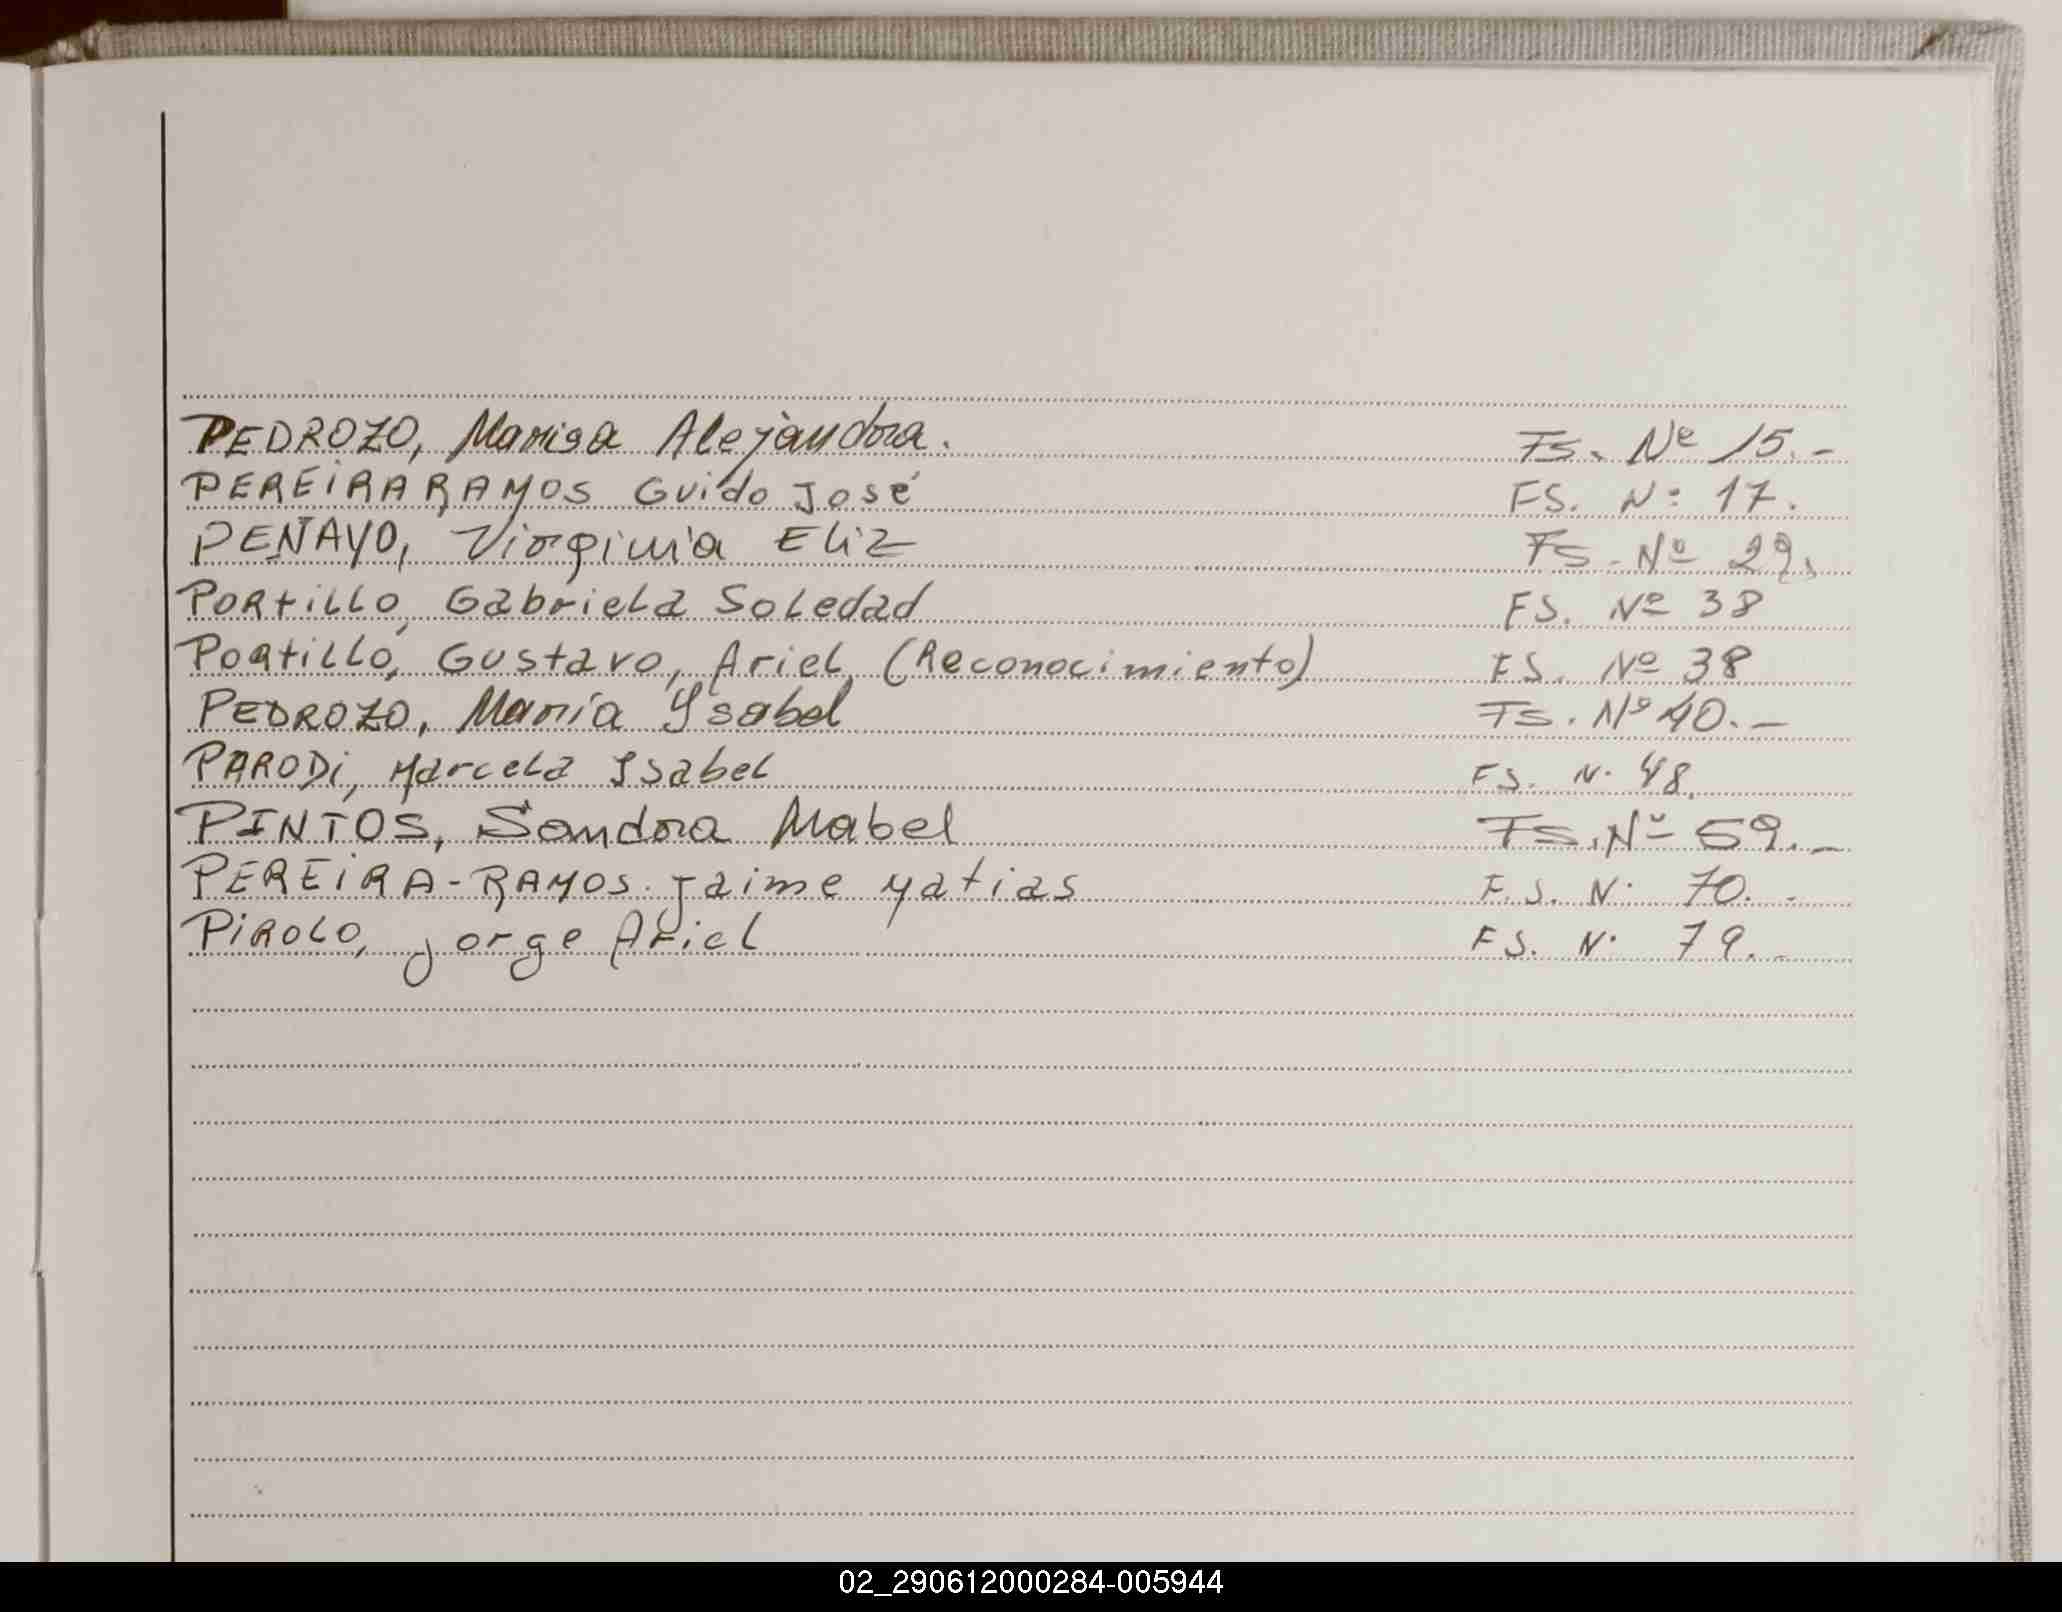 PEDROZO, Marisa Alejandra. Fs. Nº 15.-
PEREIRA RAMOS Guido José FS. Nº 17.
PENAYO, Virginia Eliz Fs. Nº 29.
PORtiLLO, Gabriela Soledad FS. Nº 38
PORtiLLO, Gustavo, Ariel, (Reconocimiento) FS. Nº 38
PEDROZO, María Ysabel Fs. Nº 40.-
PARODi, Marcela Isabel FS. N. 48.
PINTOS, Sandra Mabel Fs. Nº 59.-
PEREiRA-RAMOS. Jaime Matias F.S. N. 70.-
PiROLO, Jorge Ariel FS. N. 79.-
02_290612000284-005944